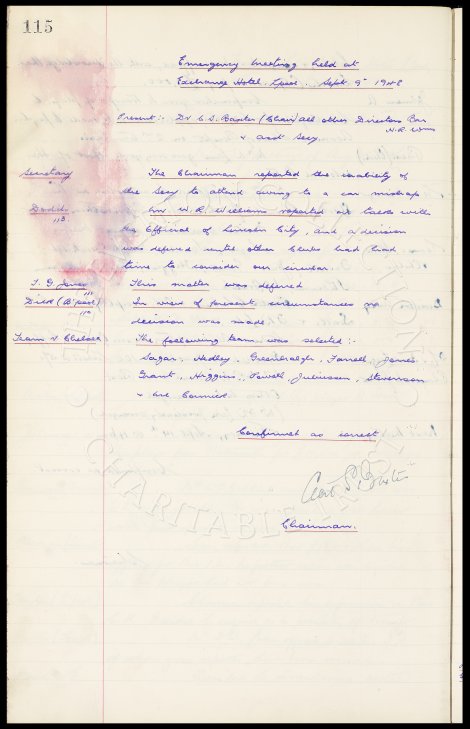 115
Emergency Meeting held at
Exchange Hotel, L'pool, Sept. 9th 1948
Present:- Dr C.S. Baxter (Chair) all other Directors Bar
W.R. Wms
& asst Secy.
Secretary The Chairman reported the inability of
the Secy to attend owing to a car mishap
Dodds Mr W.R. Williams reported on talks with
113
the Official of Lincoln City, and a decision
was deferred until other Clubs had had
time to consider our circular.
T. G. Jones This matter was deferred
111
In view of present circumstances no
110
decision was made
Team v Chelsea The following team was selected:-
Sagar, Hedley, Greenhalgh, Farrell, Jones
Grant, Higgins, Powell, Juliussen, Stevenson
Confirmed as correct
Chairman.
CHARITABLE